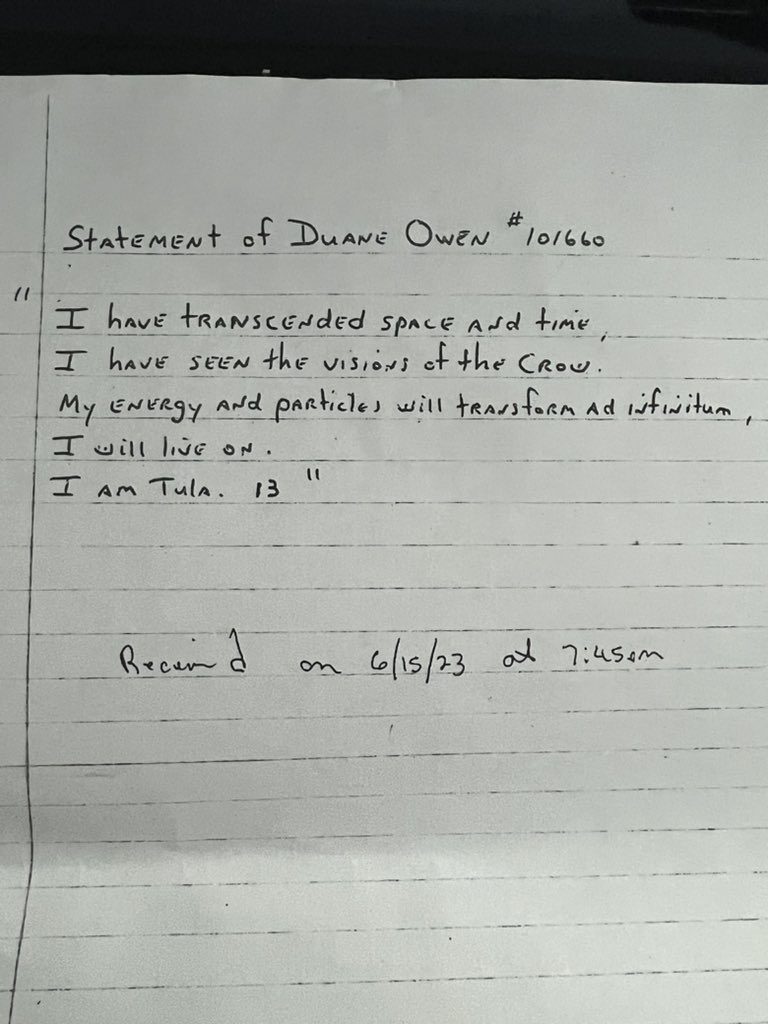 Statement of Duane Owen #101660
"I have transcended space and time,
I have seen the visions of the Crow.
My energy and particles will transform ad infinitum,
I will live on.
I am Tula. 13"
on 6/15/23 at 7:45